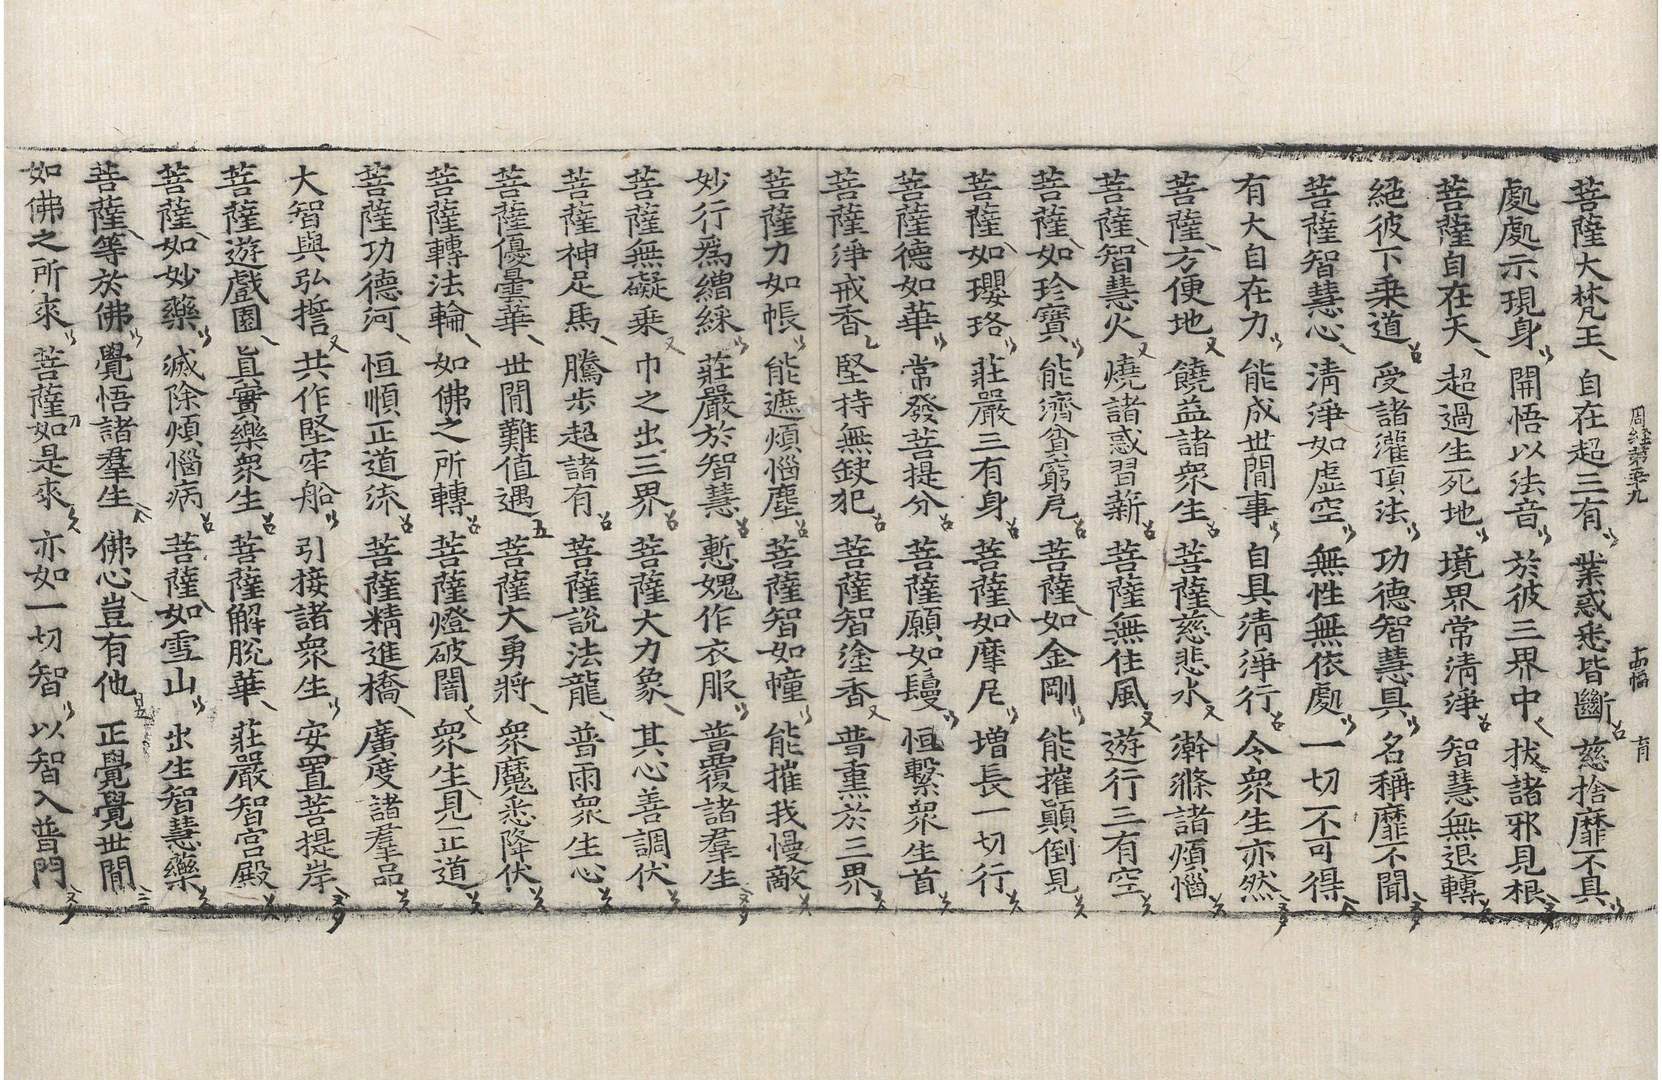 周経第五十九 十四幅
菩薩大梵王 自在超三有 業惑悉皆斷 慈捨靡不具
處處示現身 開悟以法音 於彼三界中 拔諸邪見根
菩薩自在天 超過生死地 境界常清淨 智慧無退轉
絕彼下乘道 受諸灌頂法 功德智慧具 名稱靡不聞
菩薩智慧心 清淨如虛空 無性無依處 一切不可得
有大自在力 能成世間事 自具清淨行 令衆生亦然
菩薩方便地 饒益諸衆生 菩薩慈悲水 澣滌諸煩惱
菩薩智慧火 燒諸惑習薪 菩薩無住風 遊行三有空
菩薩如珍寶 能濟貧窮厄 菩薩如金剛 能摧顚倒見
菩薩如瓔珞 莊嚴三有身 菩薩如摩尼 增長一切行
菩薩德如華 常發菩提分 菩薩願如鬘 恒繫衆生首
菩薩淨戒香 堅持無缺犯 菩薩智塗香 普熏於三界
菩薩力如帳 能遮煩惱塵 菩薩智如幢 能摧我慢敵
妙行爲繒綵 莊嚴於智慧 慙愧作衣服 普覆諸羣生
菩薩無礙乘 巾之出三界 菩薩大力象 其心善調伏
菩薩神足馬 騰步超諸有 菩薩說法龍 普雨衆生心
菩薩優曇華 世間難值遇 菩薩大勇將 衆魔悉降伏
菩薩轉法輪 如佛之所轉 菩薩燈破闇 衆生見正道
菩薩功德河 恒順正道流 菩薩精進橋 廣度諸羣品
大智與弘誓 共作堅牢船 引接諸衆生 安置菩提岸
菩薩遊戲園 眞實樂衆生 菩薩解脫華 莊嚴智宮殿
菩薩如妙藥 滅除煩惱病 菩薩如雪山 出生智慧藥
菩薩等於佛 覺悟諸羣生 佛心豈有他 正覺覺世間
如佛之所來 菩薩如是來 亦如一切智 以智入普門